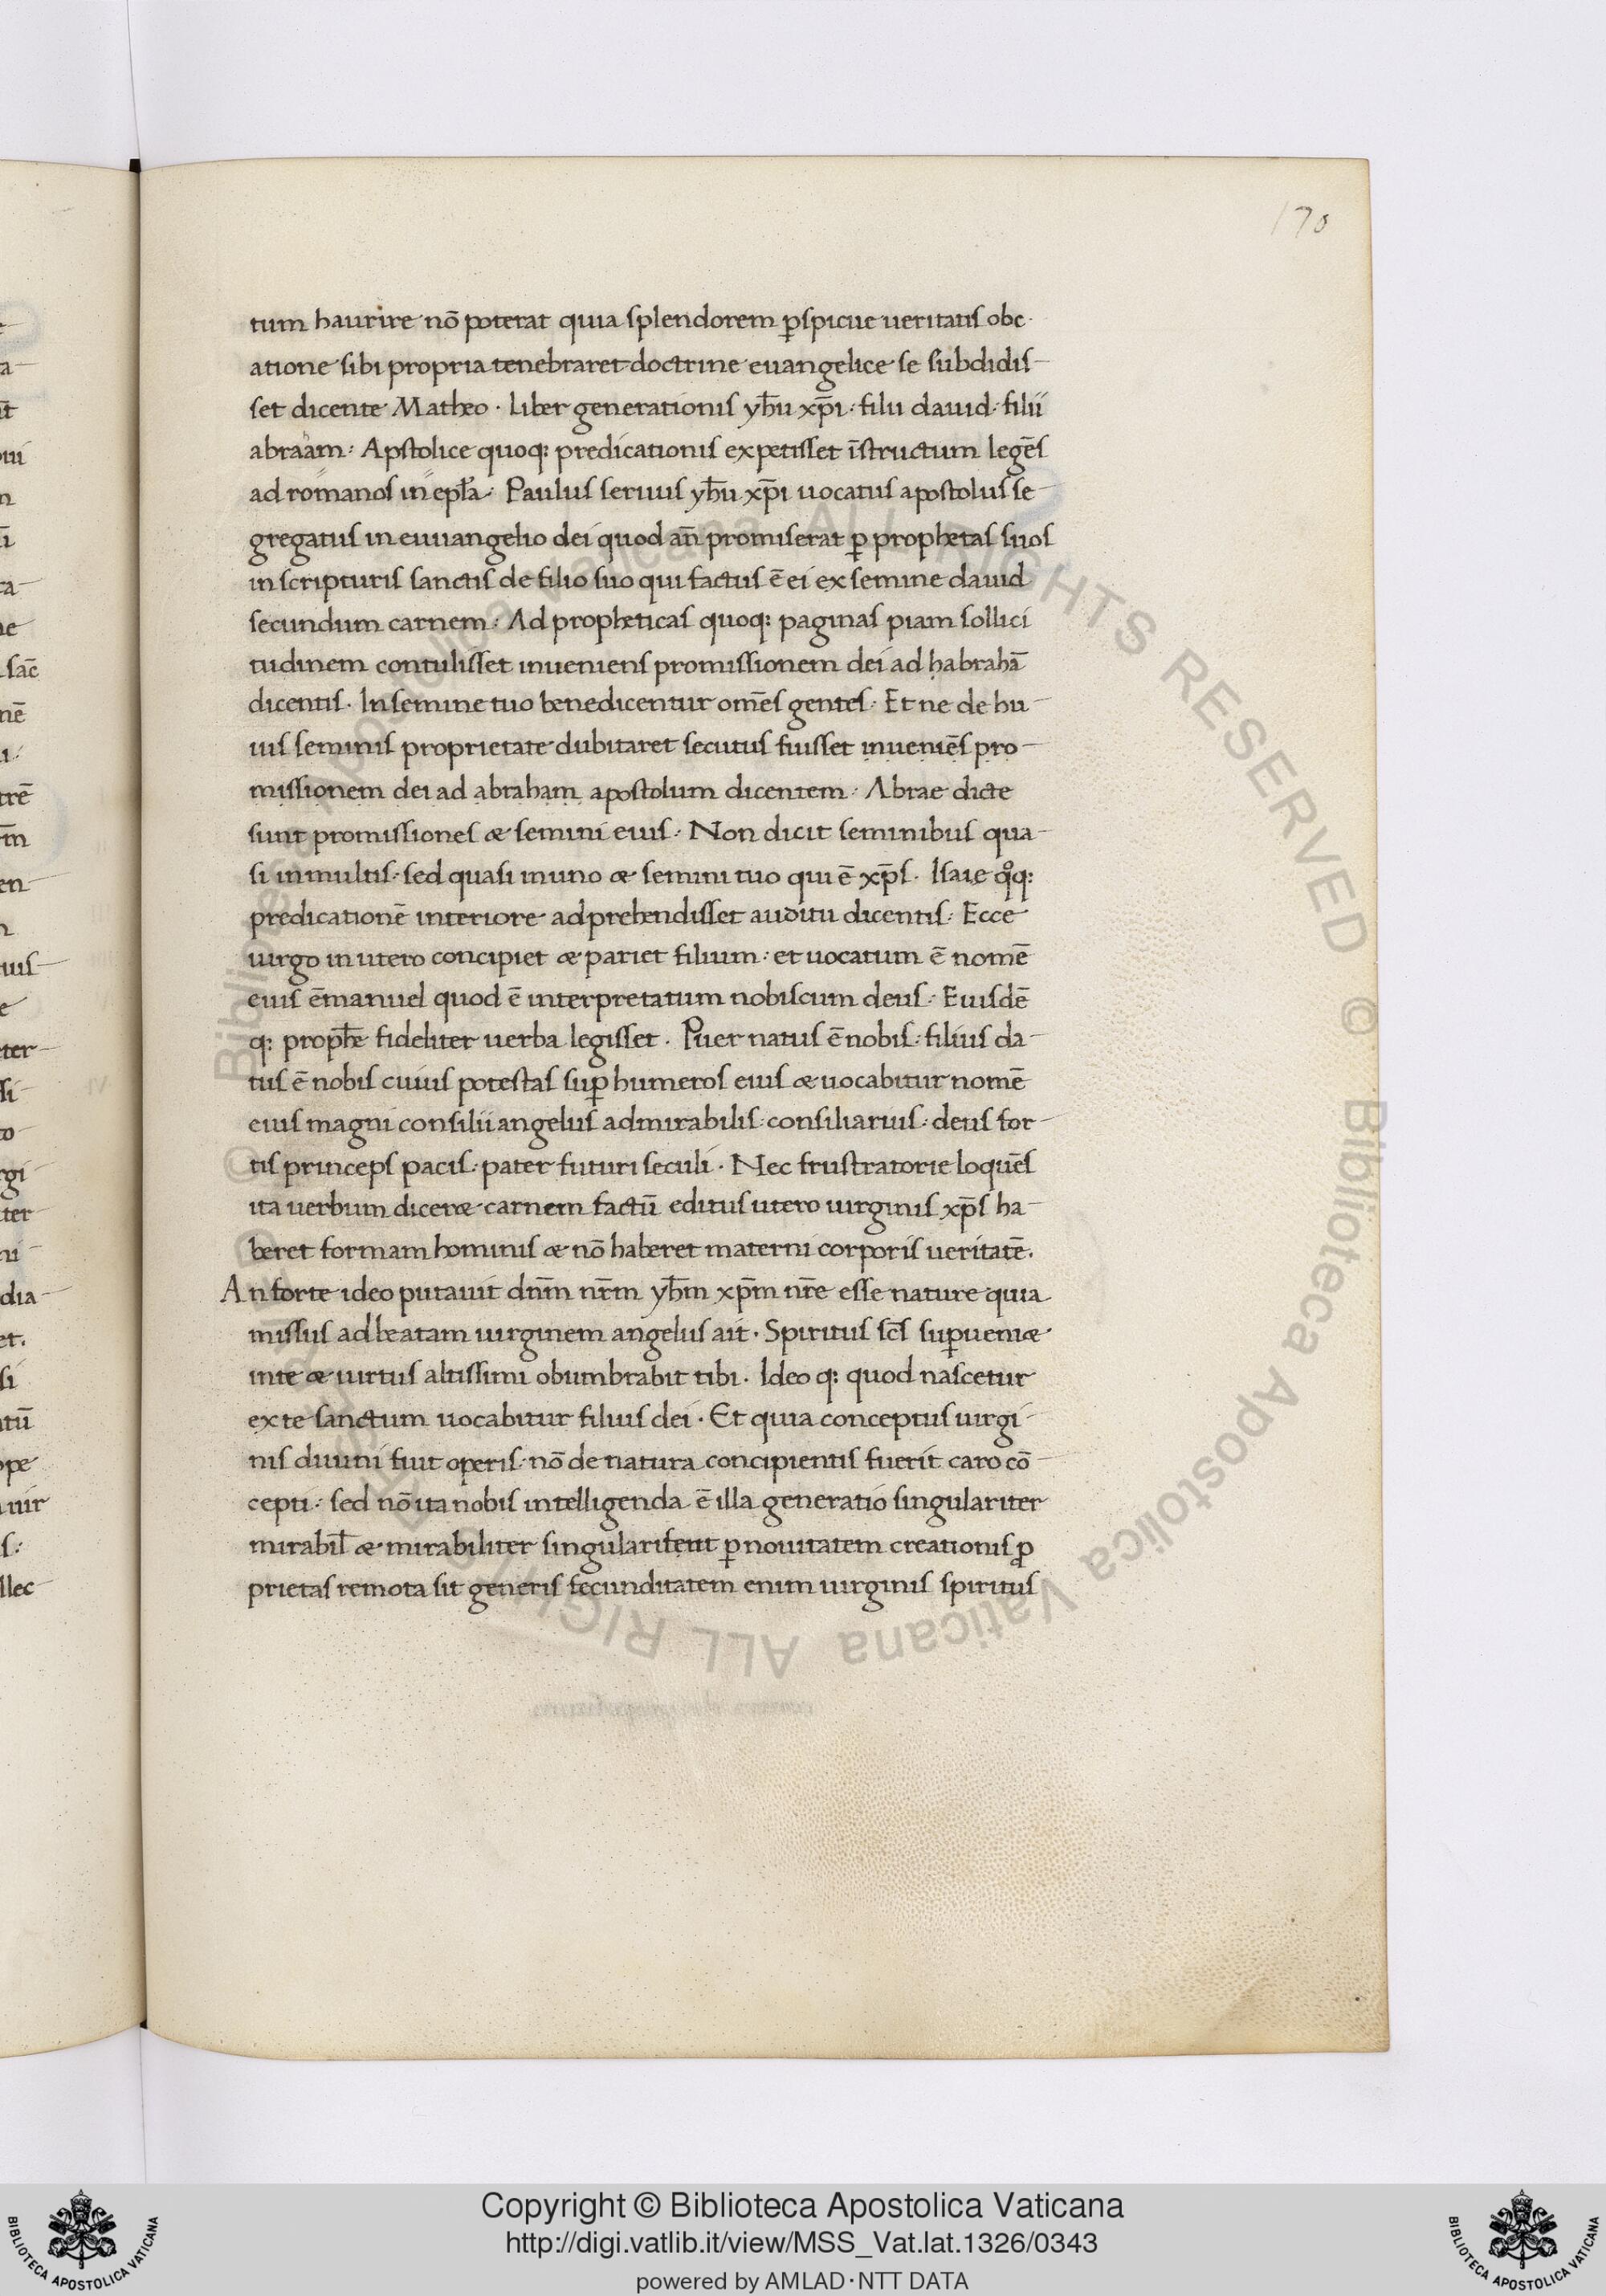 170
tum haurire nō poterat quia splendorem ꝑspicue ueritatis obc
atione sibi propria tenebraret doctrine euangelice se subdidis-
set dicente Matheo · Liber generationis yh̄u xp̄i : filii dauid : filii
abraam : Apstolice quoq: predicationis expetisset īstructum legēs
ad romanos in epl̄a · Paulus seruus yh̄u xp̄i uocatus apostolus se-
gregatus in euuangelio dei quod an̄ promiserat ꝑ prophetas suos
in scripturis sanctis de filio suo qui factus ē ei ex semine dauid
secundum carnem : Ad propheticas quoq: paginas piam sollici
tudinem contulisset inueniens promissionem dei ad habrahā
dicentis · In semine tuo benedicentur om̄es gentes · Et ne de hu-
ius seminis proprietate dubitaret secutus fuisset inueniēs pro-
missionem dei ad abraham apostolum dicentem · Abrae dicte
sunt promissiones æ semini eius : Non dicit seminibus qua-
si in multis · sed quasi in uno æ semini tuo qui ē xp̄s · Isaie qͦq:
predicationē interiore adprehendisset auditu dicentis · Ecce
uirgo in utero concipiet æ pariet filium : et uocatum ē nomē
eius ēmanuel quod ē interpretatum nobiscum deus : Eiusdē
q: proph̄e fideliter uerba legisset · Puer natus ē nobis : filius da-
tus ē nobis cuius potestas suꝑ humeros eius æ uocabitur nomē
eius magni consilii angelus admirabilis : consiliarius : deus for-
tis princeps pacis · pater futuri seculi · Nec frustratorie loquēs
ita uerbum diceræ carnem factū editus utero uirginis xp̄s ha-
beret formam hominis æ nō haberet materni corporis ueritatē.
An forte ideo putauit dn̄m nr̄m yh̄m xp̄m nr̄e esse nature quia
missus ad beatam uirginem angelus ait · Spiritus sc̄s suꝑueniæ
in te æ uirtus altissimi obumbrabit tibi · Ideo q: quod nascetur
ex te sanctum uocabitur filius dei · Et quia conceptus uirgi-
nis diuini fiut operis · nō de natura concipientis fuerit caro cō-
cepti : sed nō ita nobis intelligenda ē illa generatio singulariter
mirabil̄ æ mirabiliter singularis ut ꝑ nouitatem creationis ꝓ
prietas remota sit generis fecunditatem enim uirginis spiritus
Copyright © Biblioteca Apostolica Vaticana
http://digi.vatlib.it/view/MSS_Vat.lat.1326/0343
powered by AMLAD·NTT DATA
BIBLIOTECA APOSTOLICA VATICANA
BIBLIOTECA APOSTOLICA VATICANA
© Biblioteca Apostolica Vaticana ALL RIGHTS RESERVED © Biblioteca Apostolica Vaticana ALL RIGHTS RESERVED